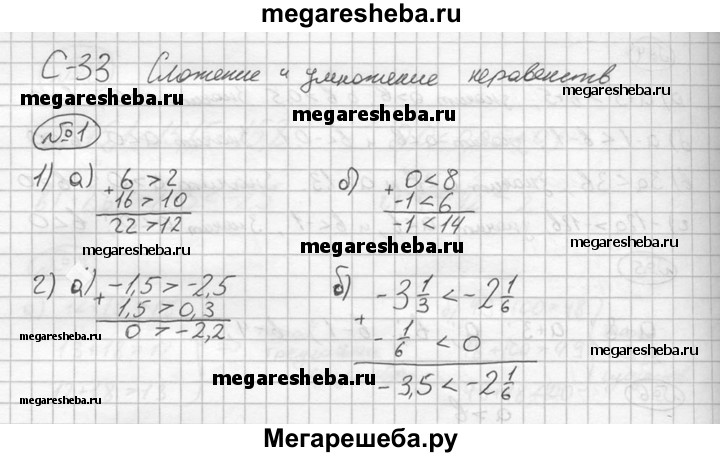 megaresheba.ru
С-33 Сложение и умножение неравенств
megaresheba.ru
megaresheba.ru
№1
megaresheba.ru
1) а) + 6 > 2
16 > 10
22 > 12
б) + 0 < 8
-1 < 6
-1 < 14
megaresheba.ru
megaresheba.ru
megaresheba.ru
2) а) + -1,5 > -2,5
1,5 > 0,3
0 > -2,2
б) + -3 1/3 < -2 1/6
-1/6 < 0
-3,5 < -2 1/6
megaresheba.ru
megaresheba.ru
megaresheba.ru
megaresheba.ru
Мегарешеба.ру